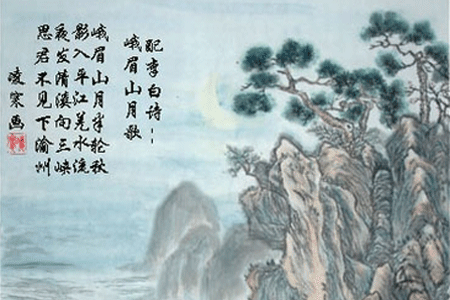 配李白诗--
峨眉山月歌
峨眉山月半轮秋
影入平江羌水流
夜发清溪向三峡
思君不见下渝州
凌寒画